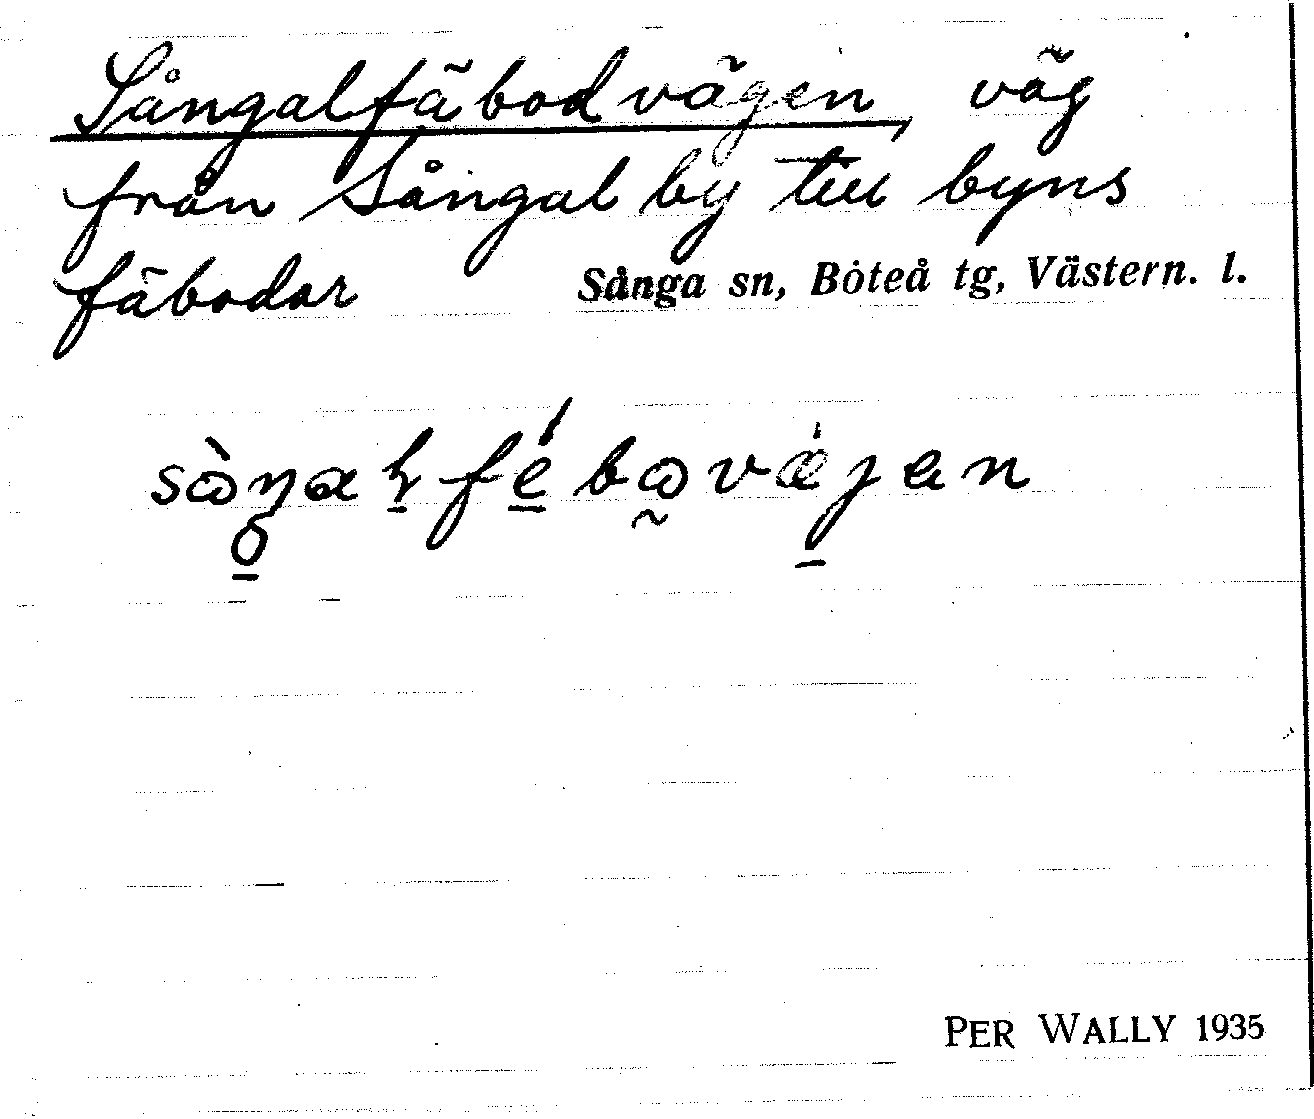 Sångalfäbodvägen, väg
från Sångal by till byns
fäbodar
Sånga sn, Boteå tg, Västern. l.
PER WALLY 1935